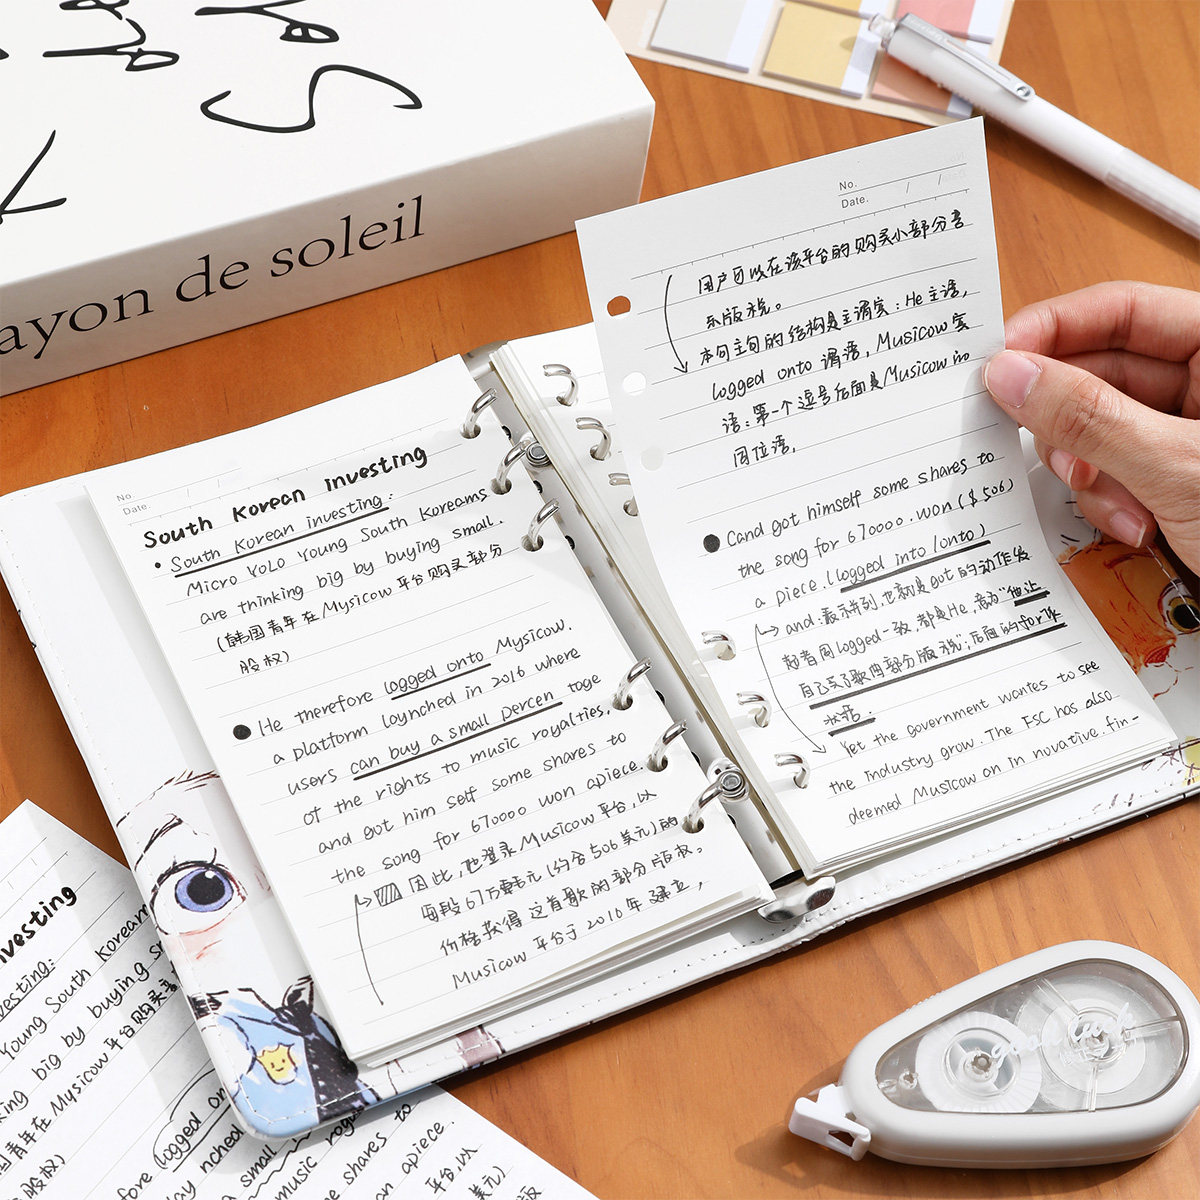 ayon de soleil
No.
Date.
South Korean investing
• South Korean investing:
Micro YOLO Young South Koreams
are thinking big by buying small.
(韩国青年在Mysicow平台购买部分
股权)
He therefore logged onto Mysicow.
a platform laynched in 2016 where
users can buy a small percen toge
of the rights to music royalties.
and got him self some shares to
the song for 670000 won apiece.
因此,他登录Musicow平台,以
每段67万韩元(约合506美元)的
价格获得这首歌的部分版权。
Musicow平台于2016年建立,
No.
Date.
用户可以在该平台的购买小部分音
乐版税。
本句主句的结构是主谓宾:He主语,
logged onto 谓语, Musicow宾
语:第一个逗号后面是Musicow的
同位语,
Cand got himself some shares to
the song for 670000.won($506)
a piece.(logged into(onto)
and:表示并列,也就是got的动作发
起者同logged一致,都是He,意为"他让
自己买了歌曲部分版税";后面的for
状语.
Yet the government wantes to see
the industry grow.The FSC has also
deemed Musicow on in novative.fin-
nvesting
vesting:
Young South Korean
king big by buying s
国青年在Mysicow平台购买
股权)
efore logged on
nched
a small
music
e shares to
apiece.
平台,以
美元)